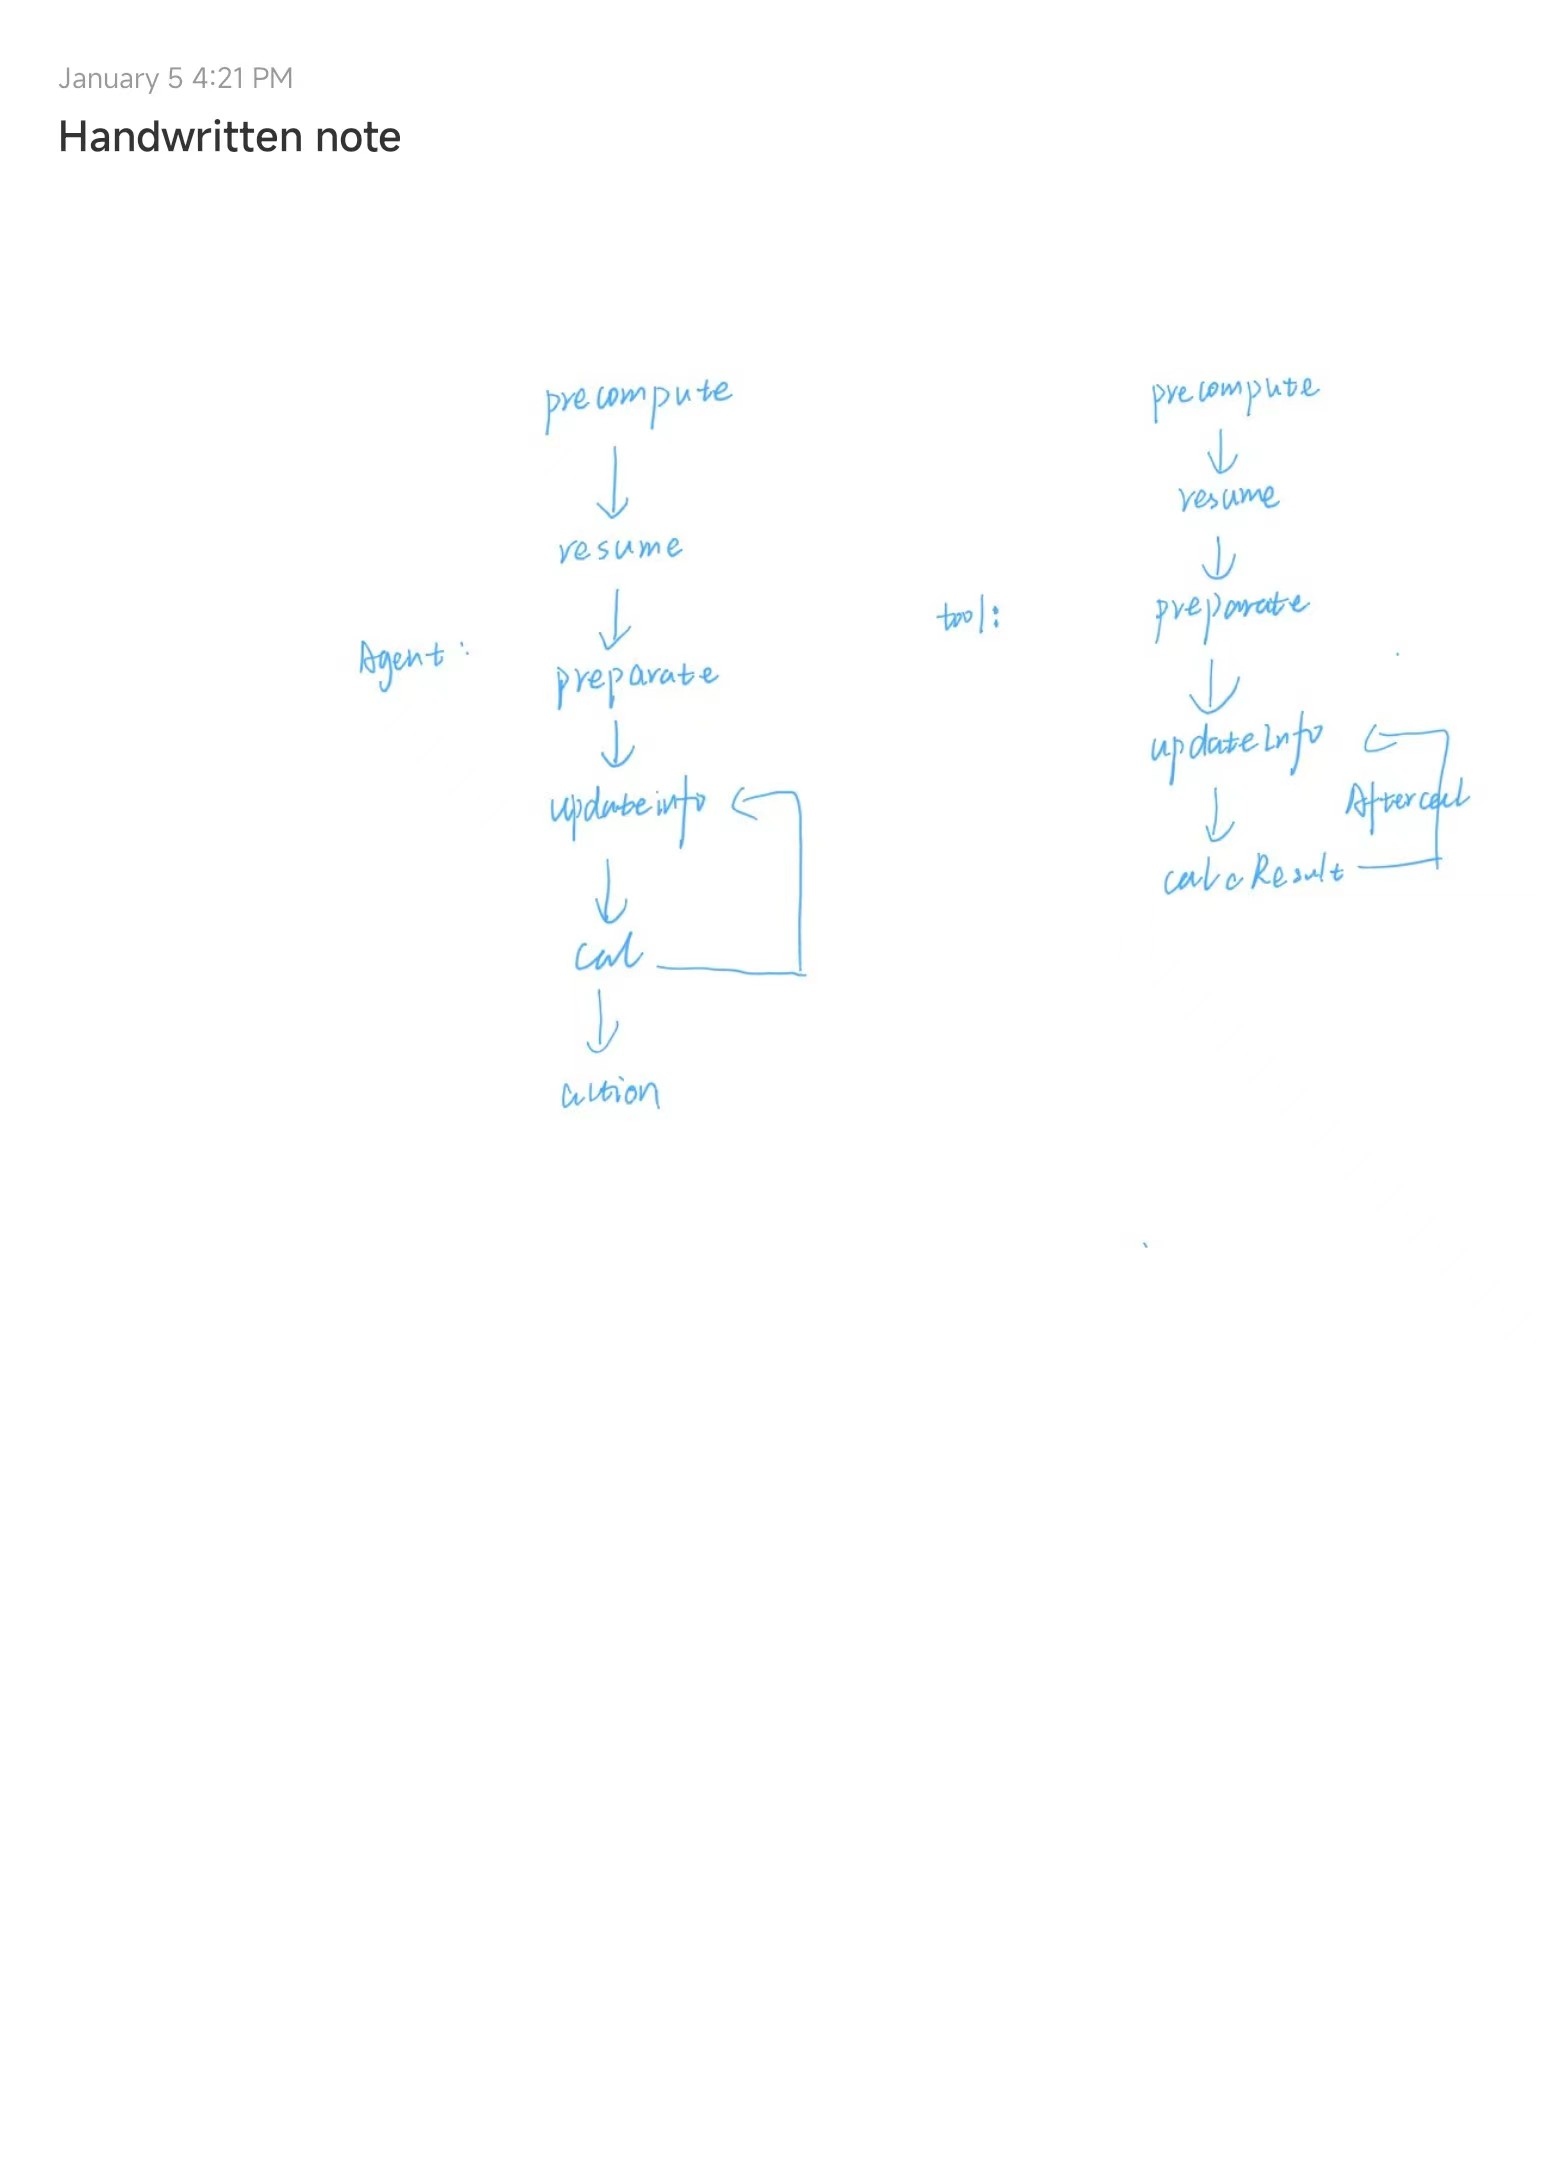 January 5 4:21 PM
Handwritten note
Agent:
precompute
resume
preparate
updateinfo
cal
action
tool:
precompute
resume
preparate
updateInfo
Aftercal
calcResult